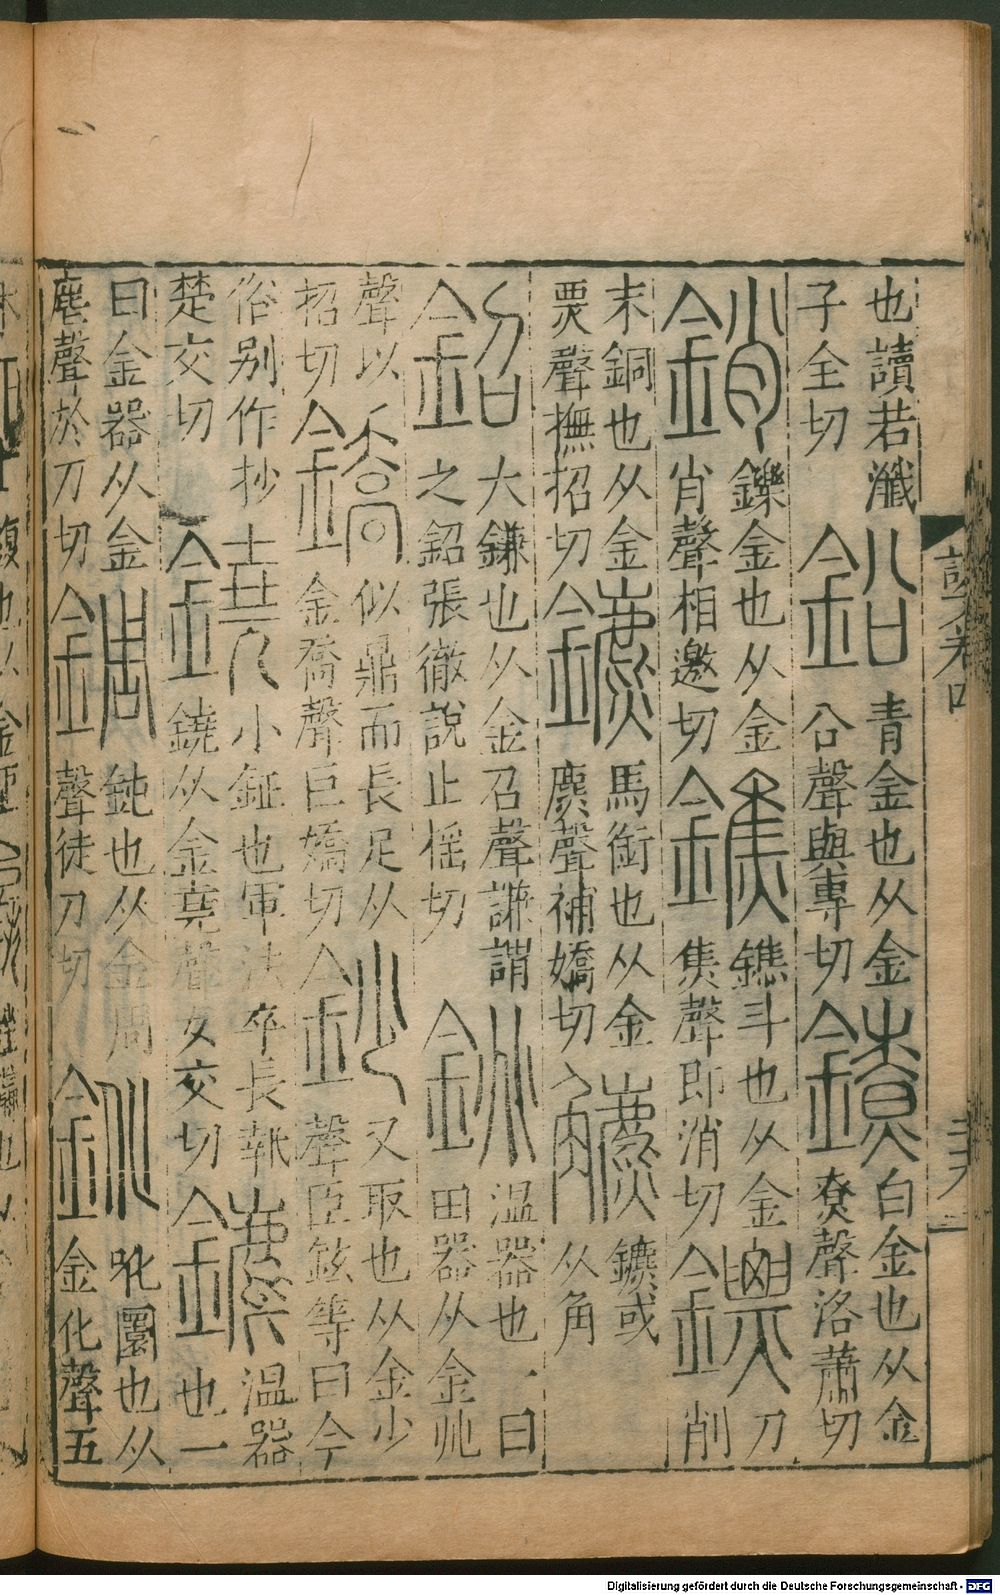 也讀若瀸
子全切
鉛
青金也从金
㕣聲與專切
鐐
白金也从金
尞聲洛蕭切
銷
鑠金也从金
肖聲相邀切
鐎
鐎斗也从金
焦聲即消切
鏢
刀
削
末銅也从金
票聲撫招切
鑣
馬銜也从金
麃聲補嬌切
鑣或
从角
鉊
大鎌也从金召聲鎌謂
之鉊張徹說止搖切
銚
温器也一曰
田器从金兆
聲以
招切
鐈
似鼎而長足从
金喬聲巨嬌切
鈔
又取也从金少
聲臣鉉等曰今
俗别作抄
楚交切
鐃
小鉦也軍法卒長執
鐃从金堯聲女交切
鏖
温器
也一
曰金器从金
麀聲於刀切
錭
鈍也从金周
聲徒刀切
鈋
吪圜也从
金化聲五
説文卷四
Digitalisierung gefördert durch die Deutsche Forschungsgemeinschaft - DFG